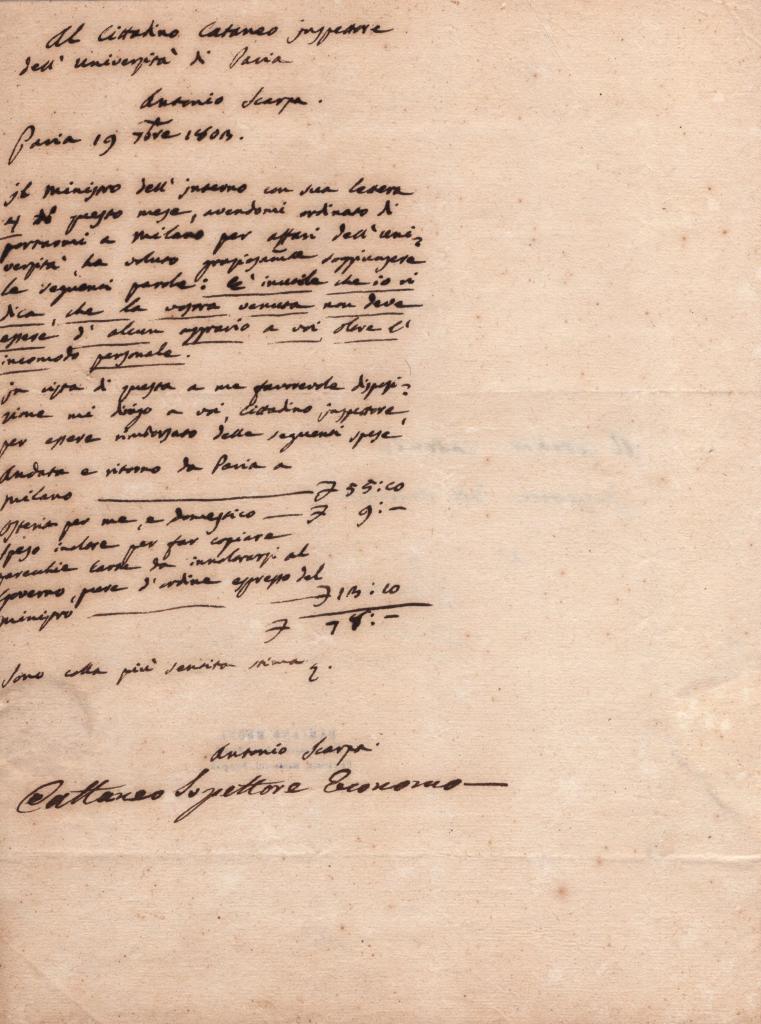 Al Cittadino Cataneo jnspettore
dell' Università di Pavia
Antonio Scarpa.
Pavia 19 7bre 1803.
jl Ministro dell' jnterno con sua lettera
4 di questo mese, avendomi ordinato di
portarmi a Milano per affari dell' uni=
versità ha voluto graziosamte soggiungere
le seguenti parole: E' inutile che io vi
dica, che la vostra venuta non deve
essere d' alcun aggravio a voi oltre l'
incomodo personale.
jn vista di questa a me favorevole disposi=
zione mi dirigo a voi, Cittadino jnspettore,
per essere rimborsato delle seguenti spese
Andata e ritorno da Pavia a
Milano — £ 55:10
Osteria per me, e domestico — £ 9:—
Speso inoltre per far copiare
parecchie carte da innoltrarsi al
Governo, pure d' ordine espresso del
Ministro — £ 13:10
£ 78:—
Sono colla più sentita stima
Antonio Scarpa
Cattaneo Ispettore Economo